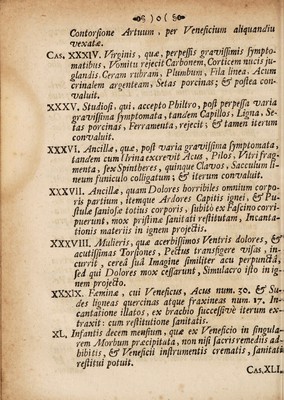 o§ ) o ( §o
Contorsione Artuum, per Veneficium aliquandiu
vexatæ.
Cas. XXXIV. Virginis, quæ, perpessis gravissimis sympto-
matibus, Vomitu rejecit Carbonem, Corticem nucis ju-
glandis. Ceram rubram, Plumbum, Fila linea. Acum
crinalem argenteam, Setas porcinas; & postea con-
valuit.
XXXV. Studiosi, qui, accepto Philtro, post perpessa varia
gravissima symptomata, tandem Capillos, Ligna, Se-
tas porcinas, Ferramenta, rejecit; & tamen iterum
convaluit.
XXXVI. Ancillæ, quæ, post varia gravissima symptomata,
tandem cum Urina excrevit Acus, Pilos, Vitri frag-
menta, sex Spintheres, quinque Clavos, Sacculum li-
neum funiculo colligatum; & iterum convaluit.
XXXVII. Ancillæ, quam Dolores horribiles omnium corpo-
ris partium, itemque Ardores Capitis ignei, & Pu-
stulæ saniosæ totius corporis, subitò ex Fascino corri-
puerunt, mox pristinæ sanitati restitutam, Incanta-
tionis materiis in ignem projectis.
XXXVIII. Mulieris, quæ acerbissimos Ventris dolores, &
acutissimas Torsiones, Pectus transfigere visas, in-
currit, cereâ suâ Imagine similiter acu perpunctâ,
sed qui Dolores mox cessarunt, Simulacro isto in ig-
nem projecto.
XXXIX. Fæminæ, cui Veneficus, Acus num. 30. & Su-
des ligneas quercinas atque fraxineas num. 17. In-
cantatione illatos, ex brachio successivè iterum ex-
traxit: cum restitutione sanitatis.
XL. Infantis decem mensium, quæ ex Veneficio in singula-
rem Morbum præcipitata, non nisi sacris remediis ad-
hibitis, & Veneficii instrumentis crematis, sanitati
restitui potuit.
Cas.XLI.